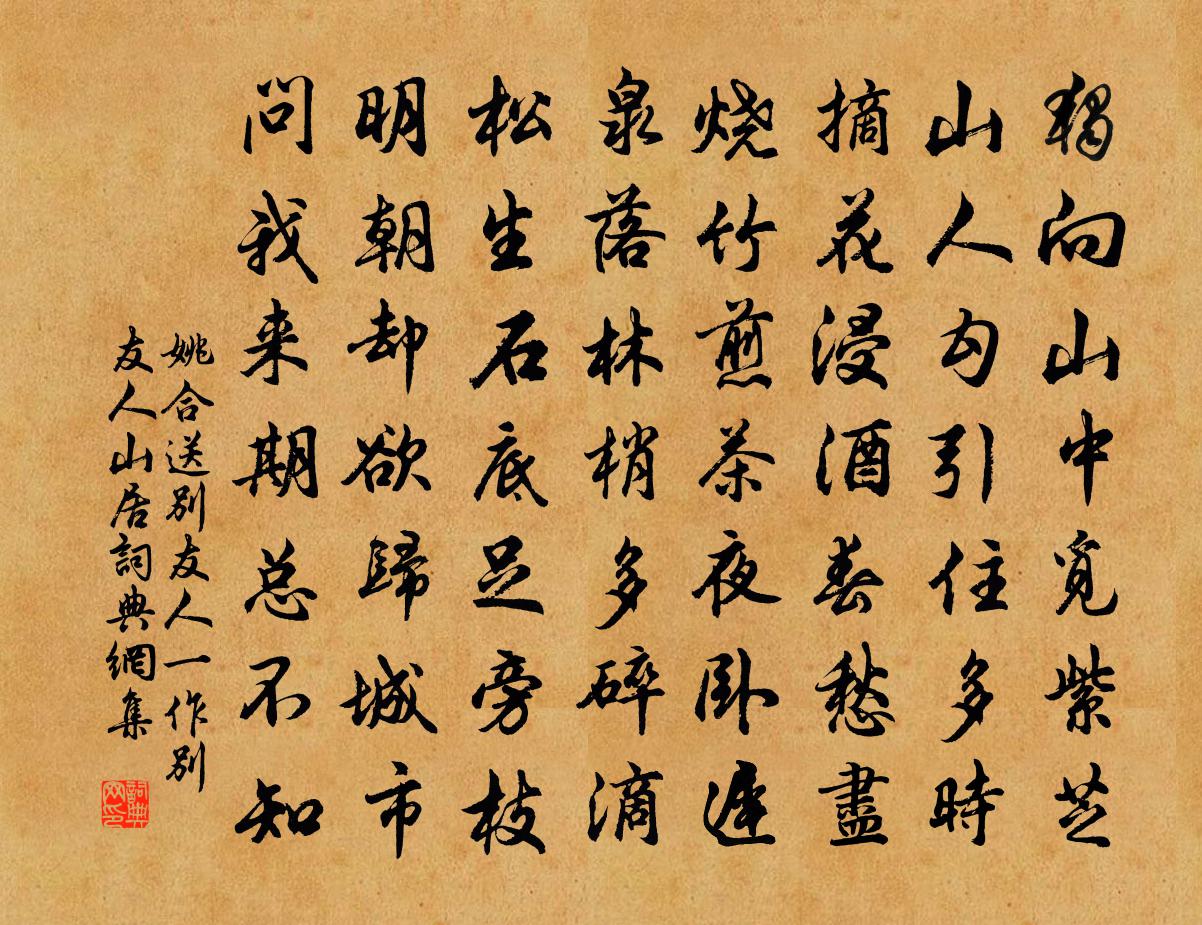 獨向山中覓紫芝
山人勾引住多時
摘花浸酒春愁盡
燒竹煎茶夜臥遲
泉落林梢多碎滴
松生石底足旁枝
明朝却欲歸城市
問我来期总不知
姚合送别友人一作别
友人山居詞典網集
詞典网印